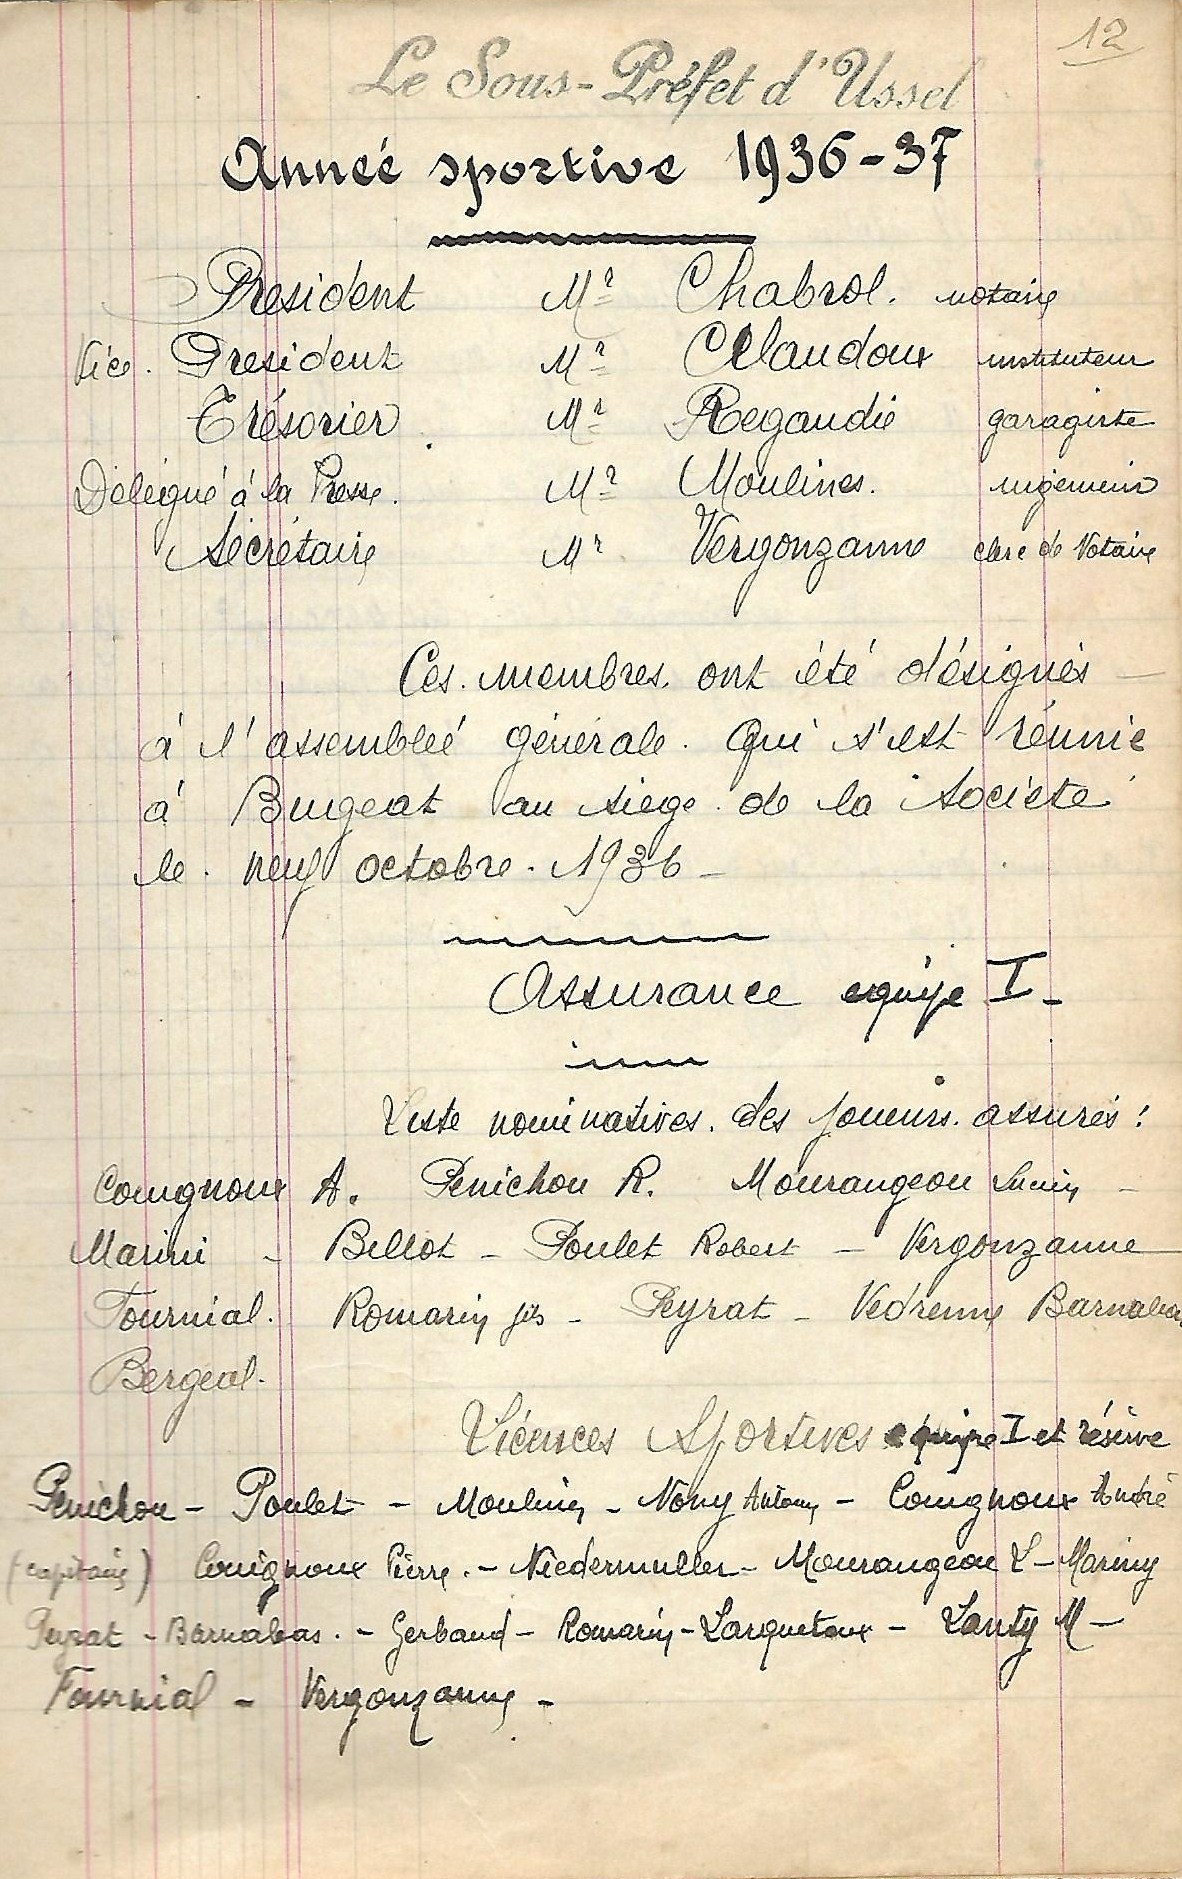 12
Le Sous-Préfet d'Ussel
Année sportive 1936-37
Président Mr Chabrol. notaire
Vice. Président Mr Claudoux instituteur
Trésorier Mr Regaudie garagiste
Délégué à la Presse. Mr Moulines. ingénieur
Secrétaire Mr Vergonzanne clerc de Notaire
Ces. membres. ont été désignés
à l'assembleé générale. qui s'est réunie
à Bugeat au siège. de la Société
le. neuf octobre. 1936 -
Assurance equipe I -
Liste nominatives. des joueurs. assurés :
Couignoux A. Penichou R. Mourangeou Lucien -
Marini - Billot - Poulet Robert - Vergonzanne
Fournial. Romarin fils - Peyrat - Vedrenne Barnabas
Bergeal.
Licences Sportives equipe I et réserve
Penichou - Poulet - Moulines - Nony Antony - Couignoux André
(capitaine) Couignoux Pierre. - Niedermuller - Mourangeou L - Mariny
Peyrat - Barnabas. - Gerbaud - Romarin - Larquetoux - Lanty M -
Fournial - Vergonzanne -